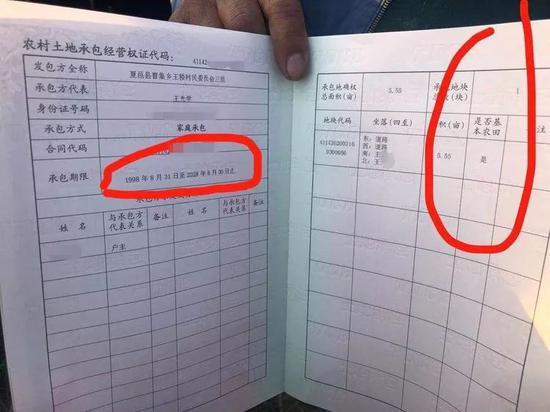 农村土地承包经营权证代码：41142
发包方全称 夏邑县曹集乡王楼村民委员会三组
承包方代表 王
身份证号码
承包方式 家庭承包
合同代码
承包期限 1998年8月31日至2028年8月30日止
姓名 与承包方代表关系 备注 姓名 与承包方代表关系 备注
户主
承包地确权总面积(亩) 5.55 承包地块总数(块) 1
地块代码 坐落(四至) 面积(亩) 是否基本农田
东：道路
西：道路
南：王
北：王
5.55 是